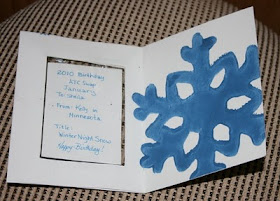 2010 Birthday
ICE Swap
January
To: Sheila
From: Kelly in
Minnesota
Title:
Winter Night Snow
Happy Birthday!